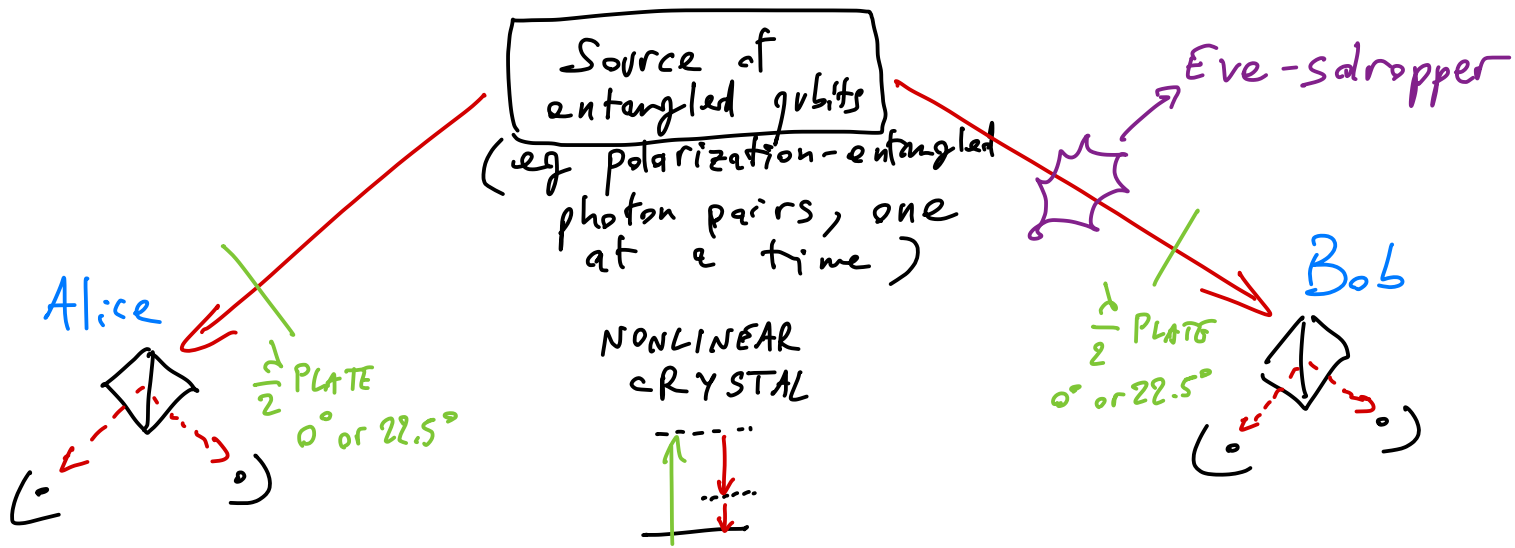 Source of
entangled qubits
(eg polarization-entangled
photon pairs, one
at a time)
Eve-sdropper
Alice
λ/2 PLATE
0° or 22.5°
NONLINEAR
CRYSTAL
Bob
λ/2 PLATE
0° or 22.5°